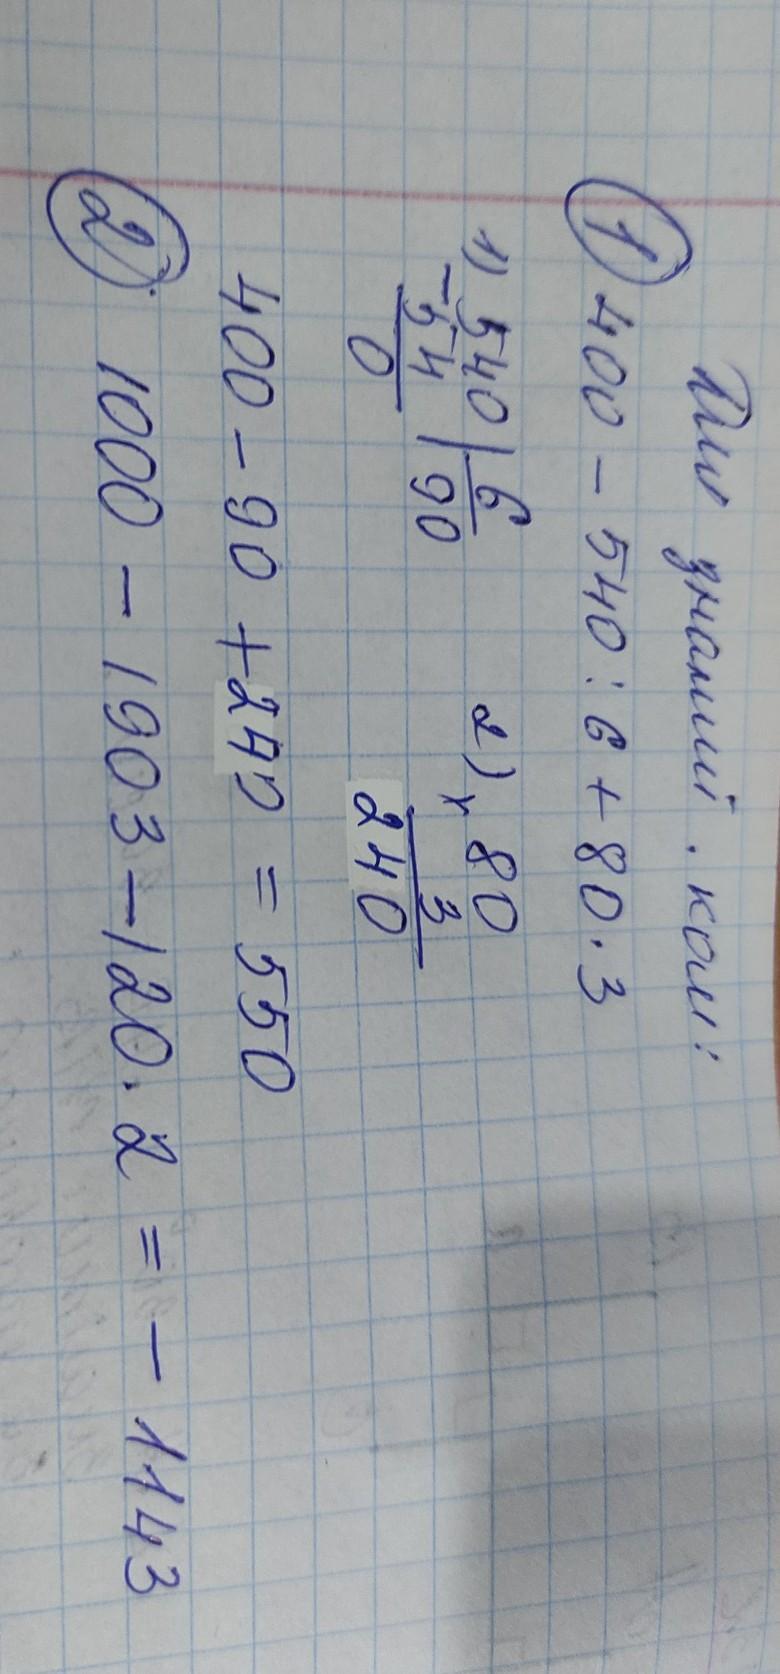 знамий. кош:
1 400 - 540 : 6 + 80 · 3
1) 540 | 6 2) × 80
- 54 | 90 3
0 240
400 - 90 + 240 = 550
2). 1000 - 1903 - 120 · 2 = - 1143